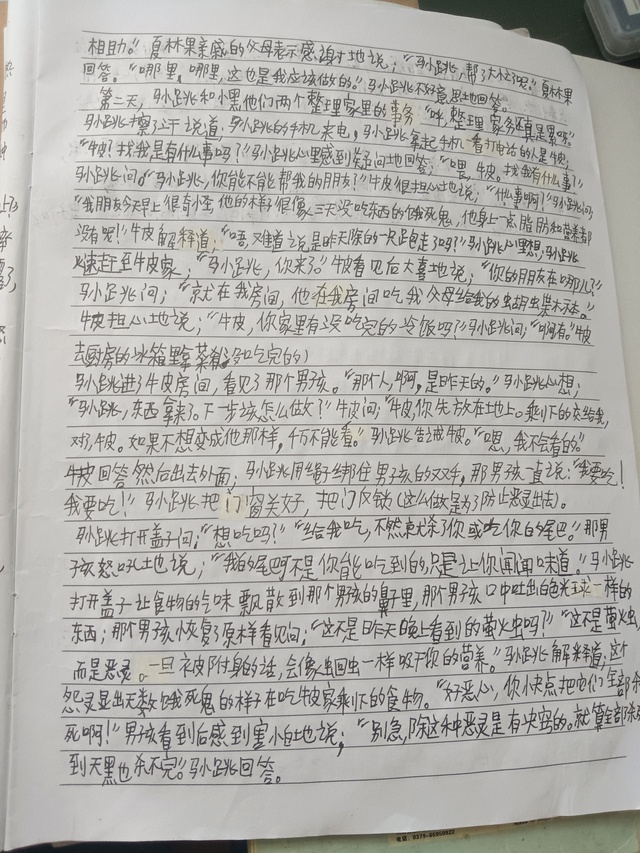 相助。”夏林果亲感的父母表示感谢地说；“马小跳，帮了大忙了呢。”夏林果
回答。“哪里，哪里，这也是我应该做的。”马小跳不好意思地回答。
第二天，马小跳和小黑他们两个整理家里的事务，“呼，整理家务真是累呀。”
马小跳擦了汗说道，马小跳的手机来电，马小跳拿起手机一看打电话的人是牛皮，
“牛皮？找我是有什么事吗？”马小跳心里感到疑问地回答；“喂，牛皮。找我有什么事？”
马小跳问。“马小跳，你能不能帮我的朋友？”牛皮很担心地说；“什么事啊？”马小跳问
“我朋友今天早上很奇怪他的样子很像三天没吃东西的饿死鬼，他身上一点脂肪和营养都
没有呢！”牛皮解释道；“唔，难道说是昨天除的一只跑走了吗？”马小跳心里想；马小跳
火速赶至牛皮家；“马小跳，你来了。”牛皮看见后大喜地说；“你的朋友在哪儿？”
马小跳问；“就在我房间，他在我房间吃我父母给我的
牛皮担心地说；“牛皮，你家里有没吃完的冷饭吗？”马小跳问；“啊有。”牛皮
去厨房的冰箱里拿菜（有没吃完的）
马小跳进了牛皮房间，看见了那个男孩。“那个人，啊，是昨天的。”马小跳心想；
“马小跳，东西拿来了下一步该怎么做？”牛皮问；“牛皮，你先放在地上。剩下的交给我，
对了，牛皮。如果不想变成他那样，千万不能看。”马小跳告诫牛皮。“嗯，我不会看的。”
牛皮回答然后出去外面；马小跳用绳子绑住男孩的双手，那男孩一直说：“我要吃！
我要吃！”马小跳把门窗关好，把门反锁（这么做是为了防止恶灵出去）。
马小跳打开盖子问；“想吃吗？”“给我吃，不然就杀了你或吃你的尾巴。”那男
孩怒吼地说；“我的尾巴可不是你能吃到的，只是让你闻闻味道。”马小跳
打开盖子让食物的气味飘散到那个男孩的鼻子里，那个男孩口中吐出白色光球一样的
东西；那个男孩恢复了原样看见问；“这不是昨天晚上看到的萤火虫吗？”“这不是萤火虫，
而是恶灵。一旦被附身的话，会像蛔虫一样吸干你的营养。”马小跳解释道；这个
怨灵显出无数饿死鬼的样子在吃牛皮家剩下的食物。“好恶心，你快点把它们全部杀
死啊！”男孩看到后感到害怕地说；“别急，除这种恶灵是有诀窍的。就算全部杀
到天黑也杀不完。”马小跳回答。
电话：0375-86950922